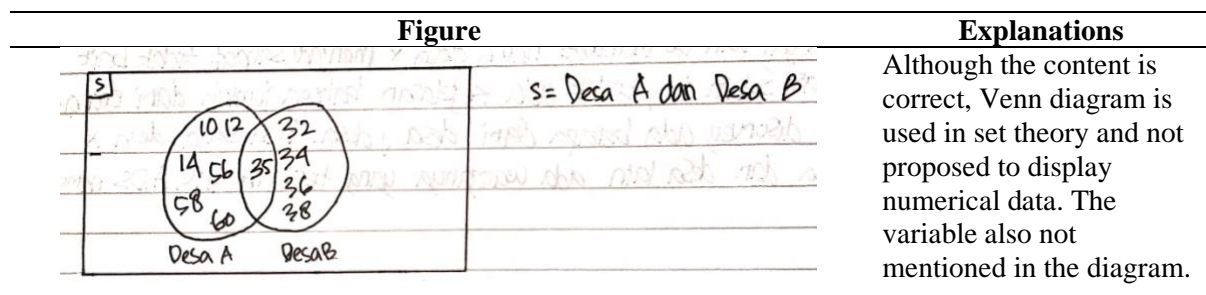 Figure
Explanations
S
S = Desa A dan Desa B
10 12
32
14 56
35
34
36
58
60
38
Desa A
Desa B
Although the content is
correct, Venn diagram is
used in set theory and not
proposed to display
numerical data. The
variable also not
mentioned in the diagram.